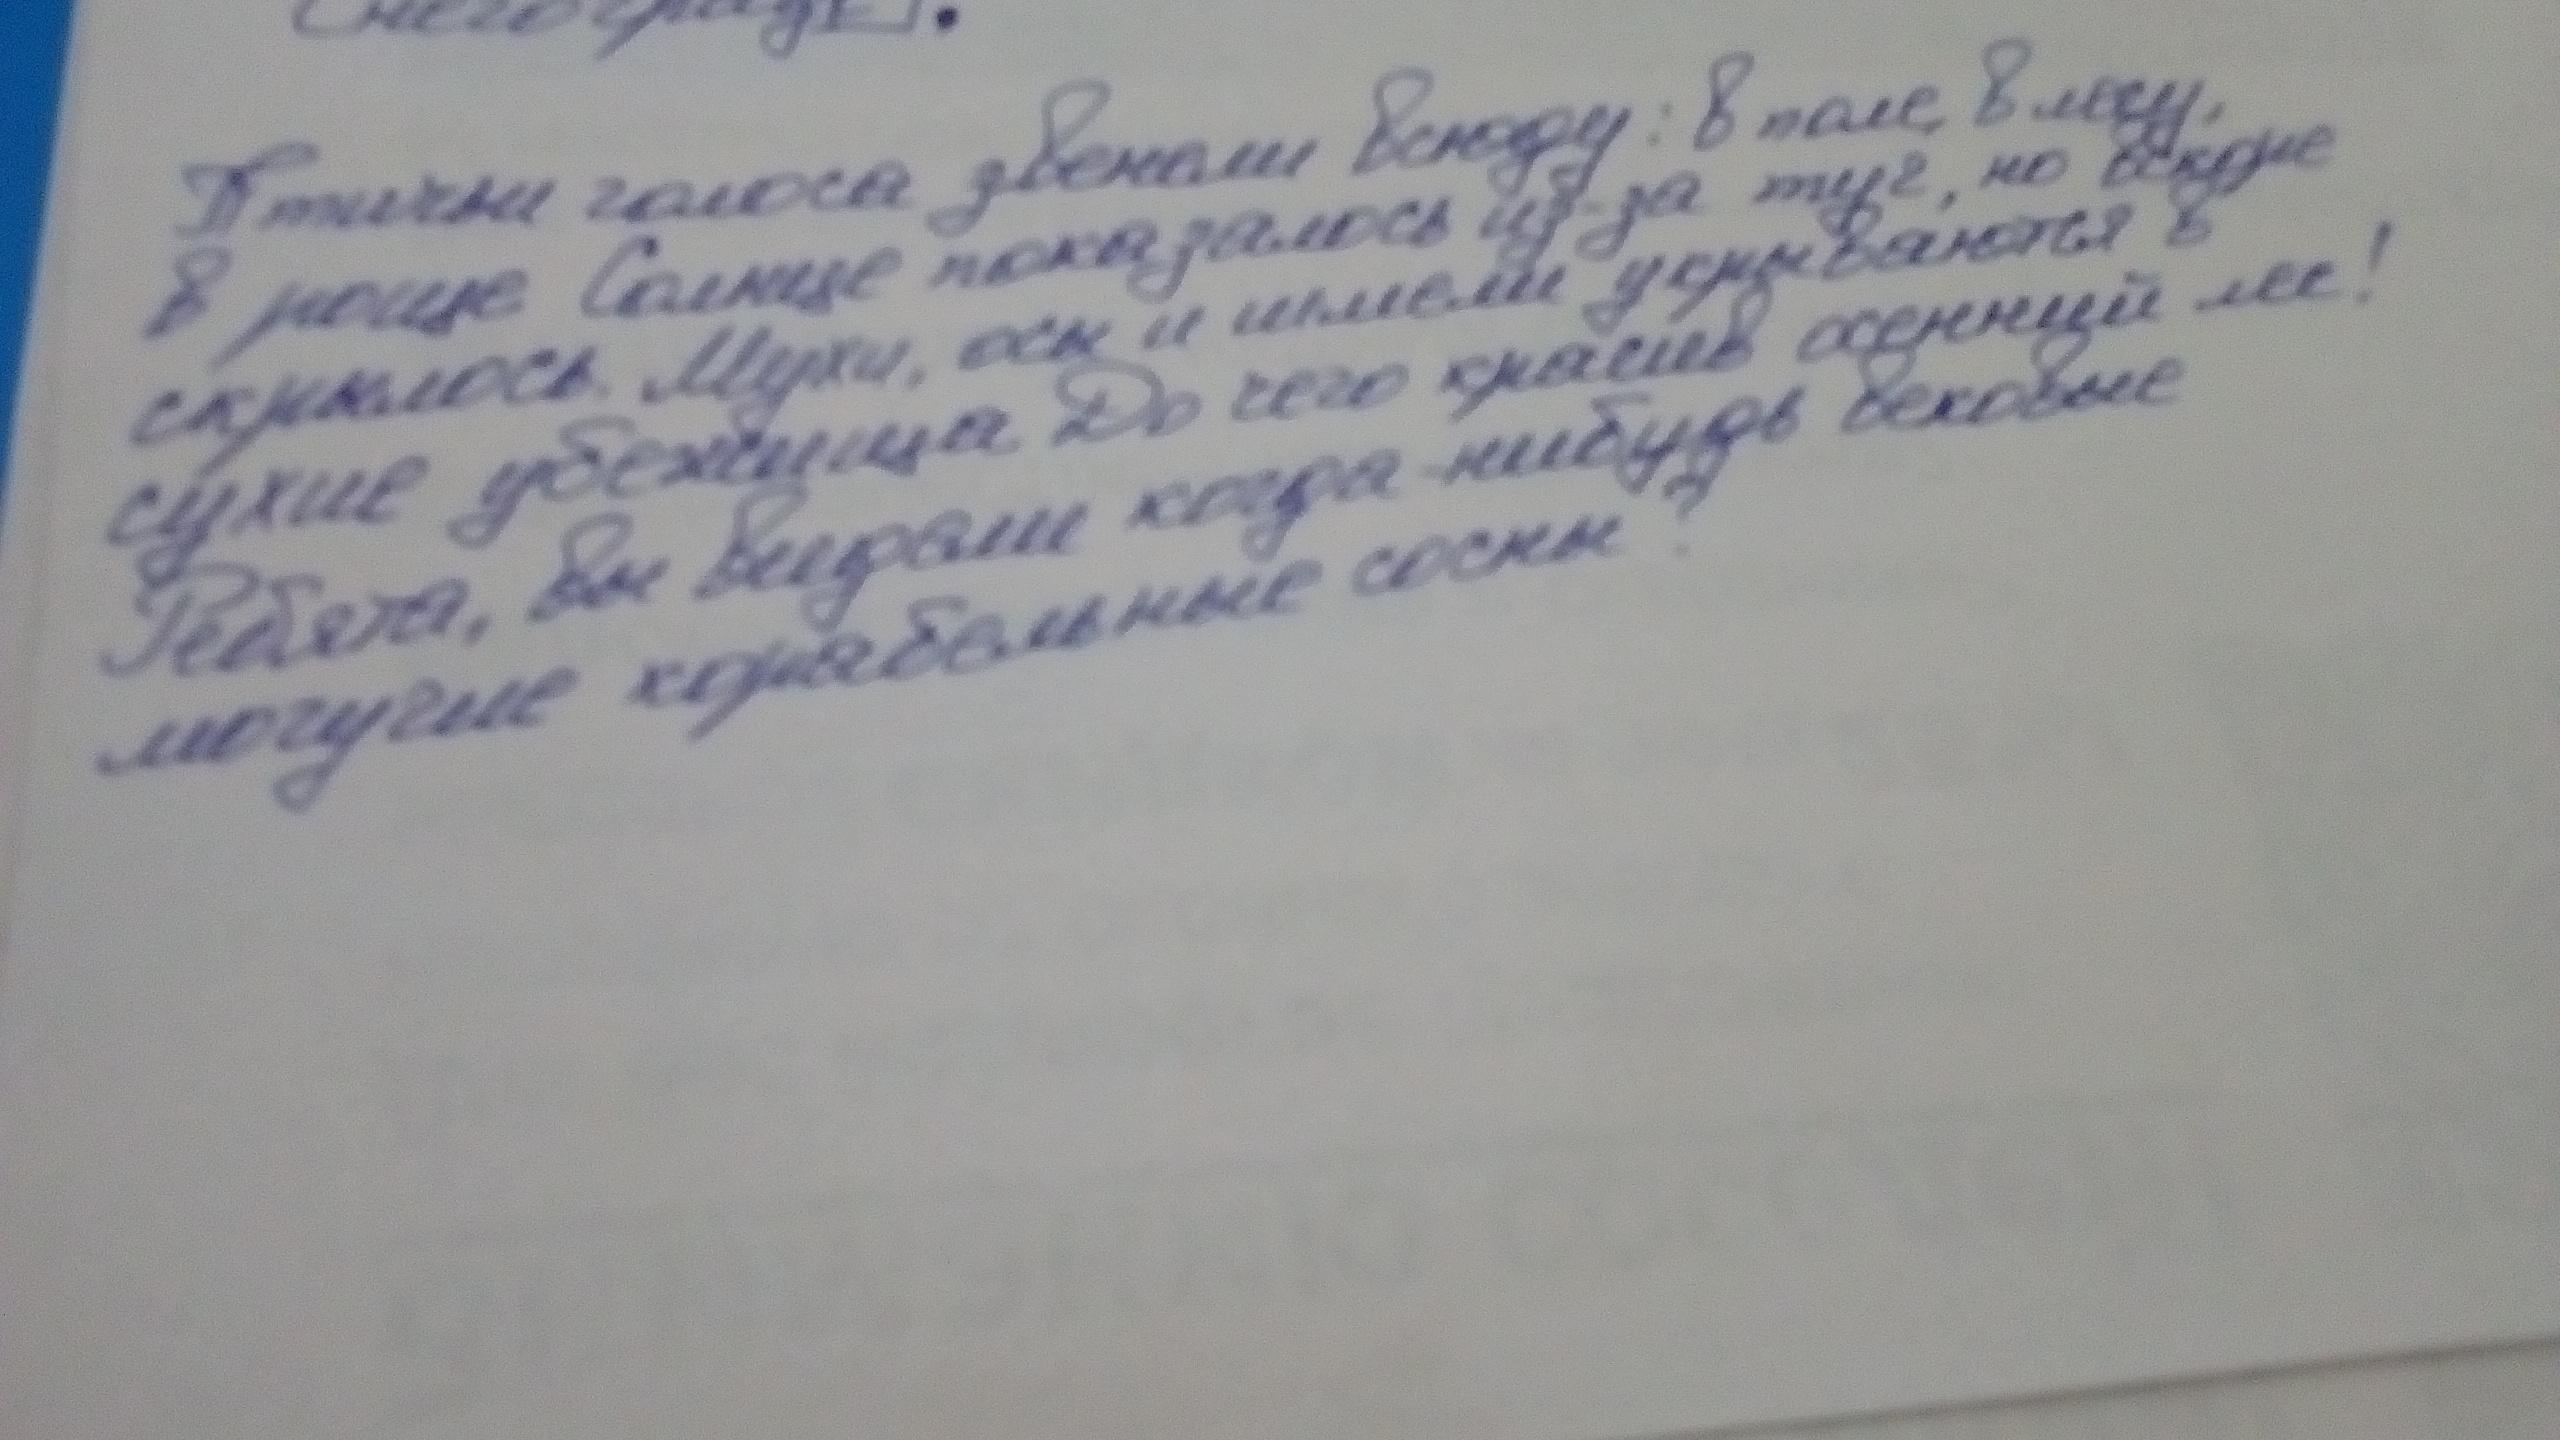 Птичьи голоса звенели всюду: в поле, в лесу,
в роще Солнце показалось из-за туч, но вскоре
скрылось. Мухи, осы и шмели укрываются в
сухие убежища До чего красив осенний лес!
Ребята, вы видали когда-нибудь вековые
могучие корабельные сосны?